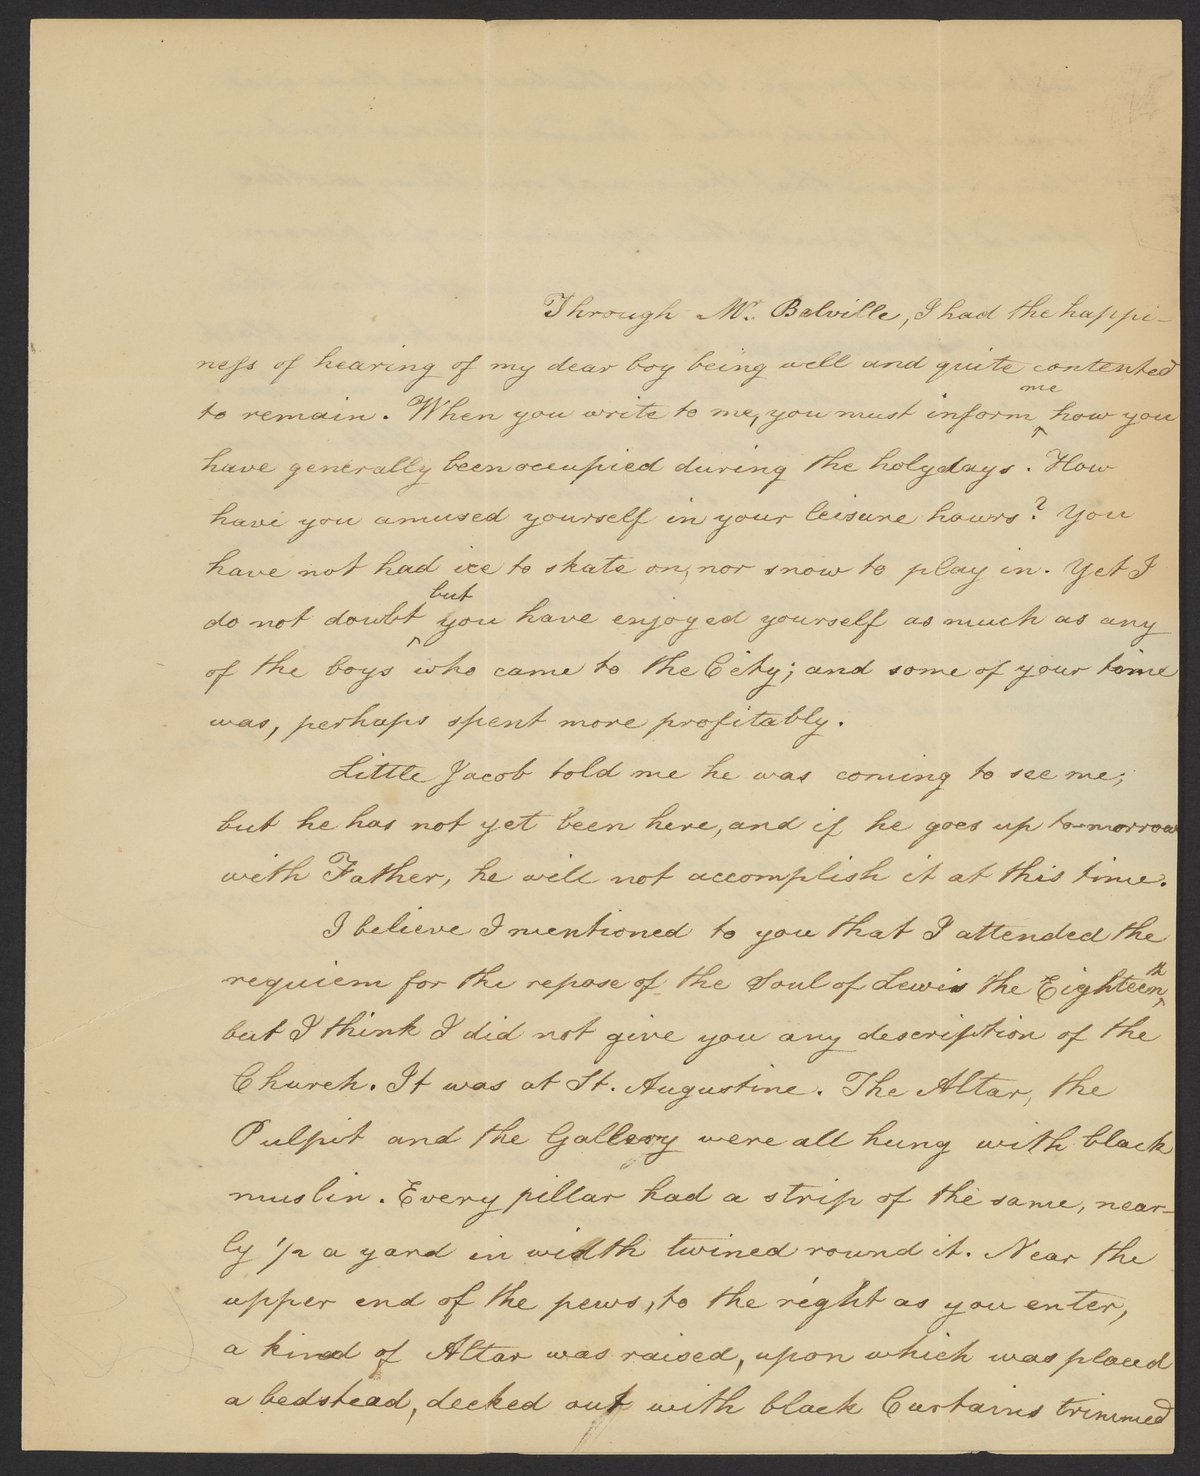 Through Mr. Balville, I had the happi-
ness of hearing of my dear boy being well and quite contented
me
to remain. When you write to me, you must inform ^ how you
have generally been occupied during the holydays. How
have you amused yourself in your leisure hours? You
have not had ice to skate on, nor snow to play in. Yet I
but
do not doubt ^ you have enjoyed yourself as much as any
of the boys who came to the City; and some of your time
was, perhaps spent more profitably.
Little Jacob told me he was coming to see me;
but he has not yet been here, and if he goes up to-morrow
with Father, he will not accomplish it at this time.
I believe I mentioned to you that I attended the
requiem for the repose of the Soul of Lewis the Eighteenth,
but I think I did not give you any description of the
Church. It was at St. Augustine. The Altar, the
Pulpit and the Gallery were all hung with black
muslin. Every pillar had a strip of the same, near-
ly 1/2 a yard in width twined round it. Near the
upper end of the pews, to the right as you enter,
a kind of Altar was raised, upon which was placed
a bedstead, decked out with black Curtains trimmed